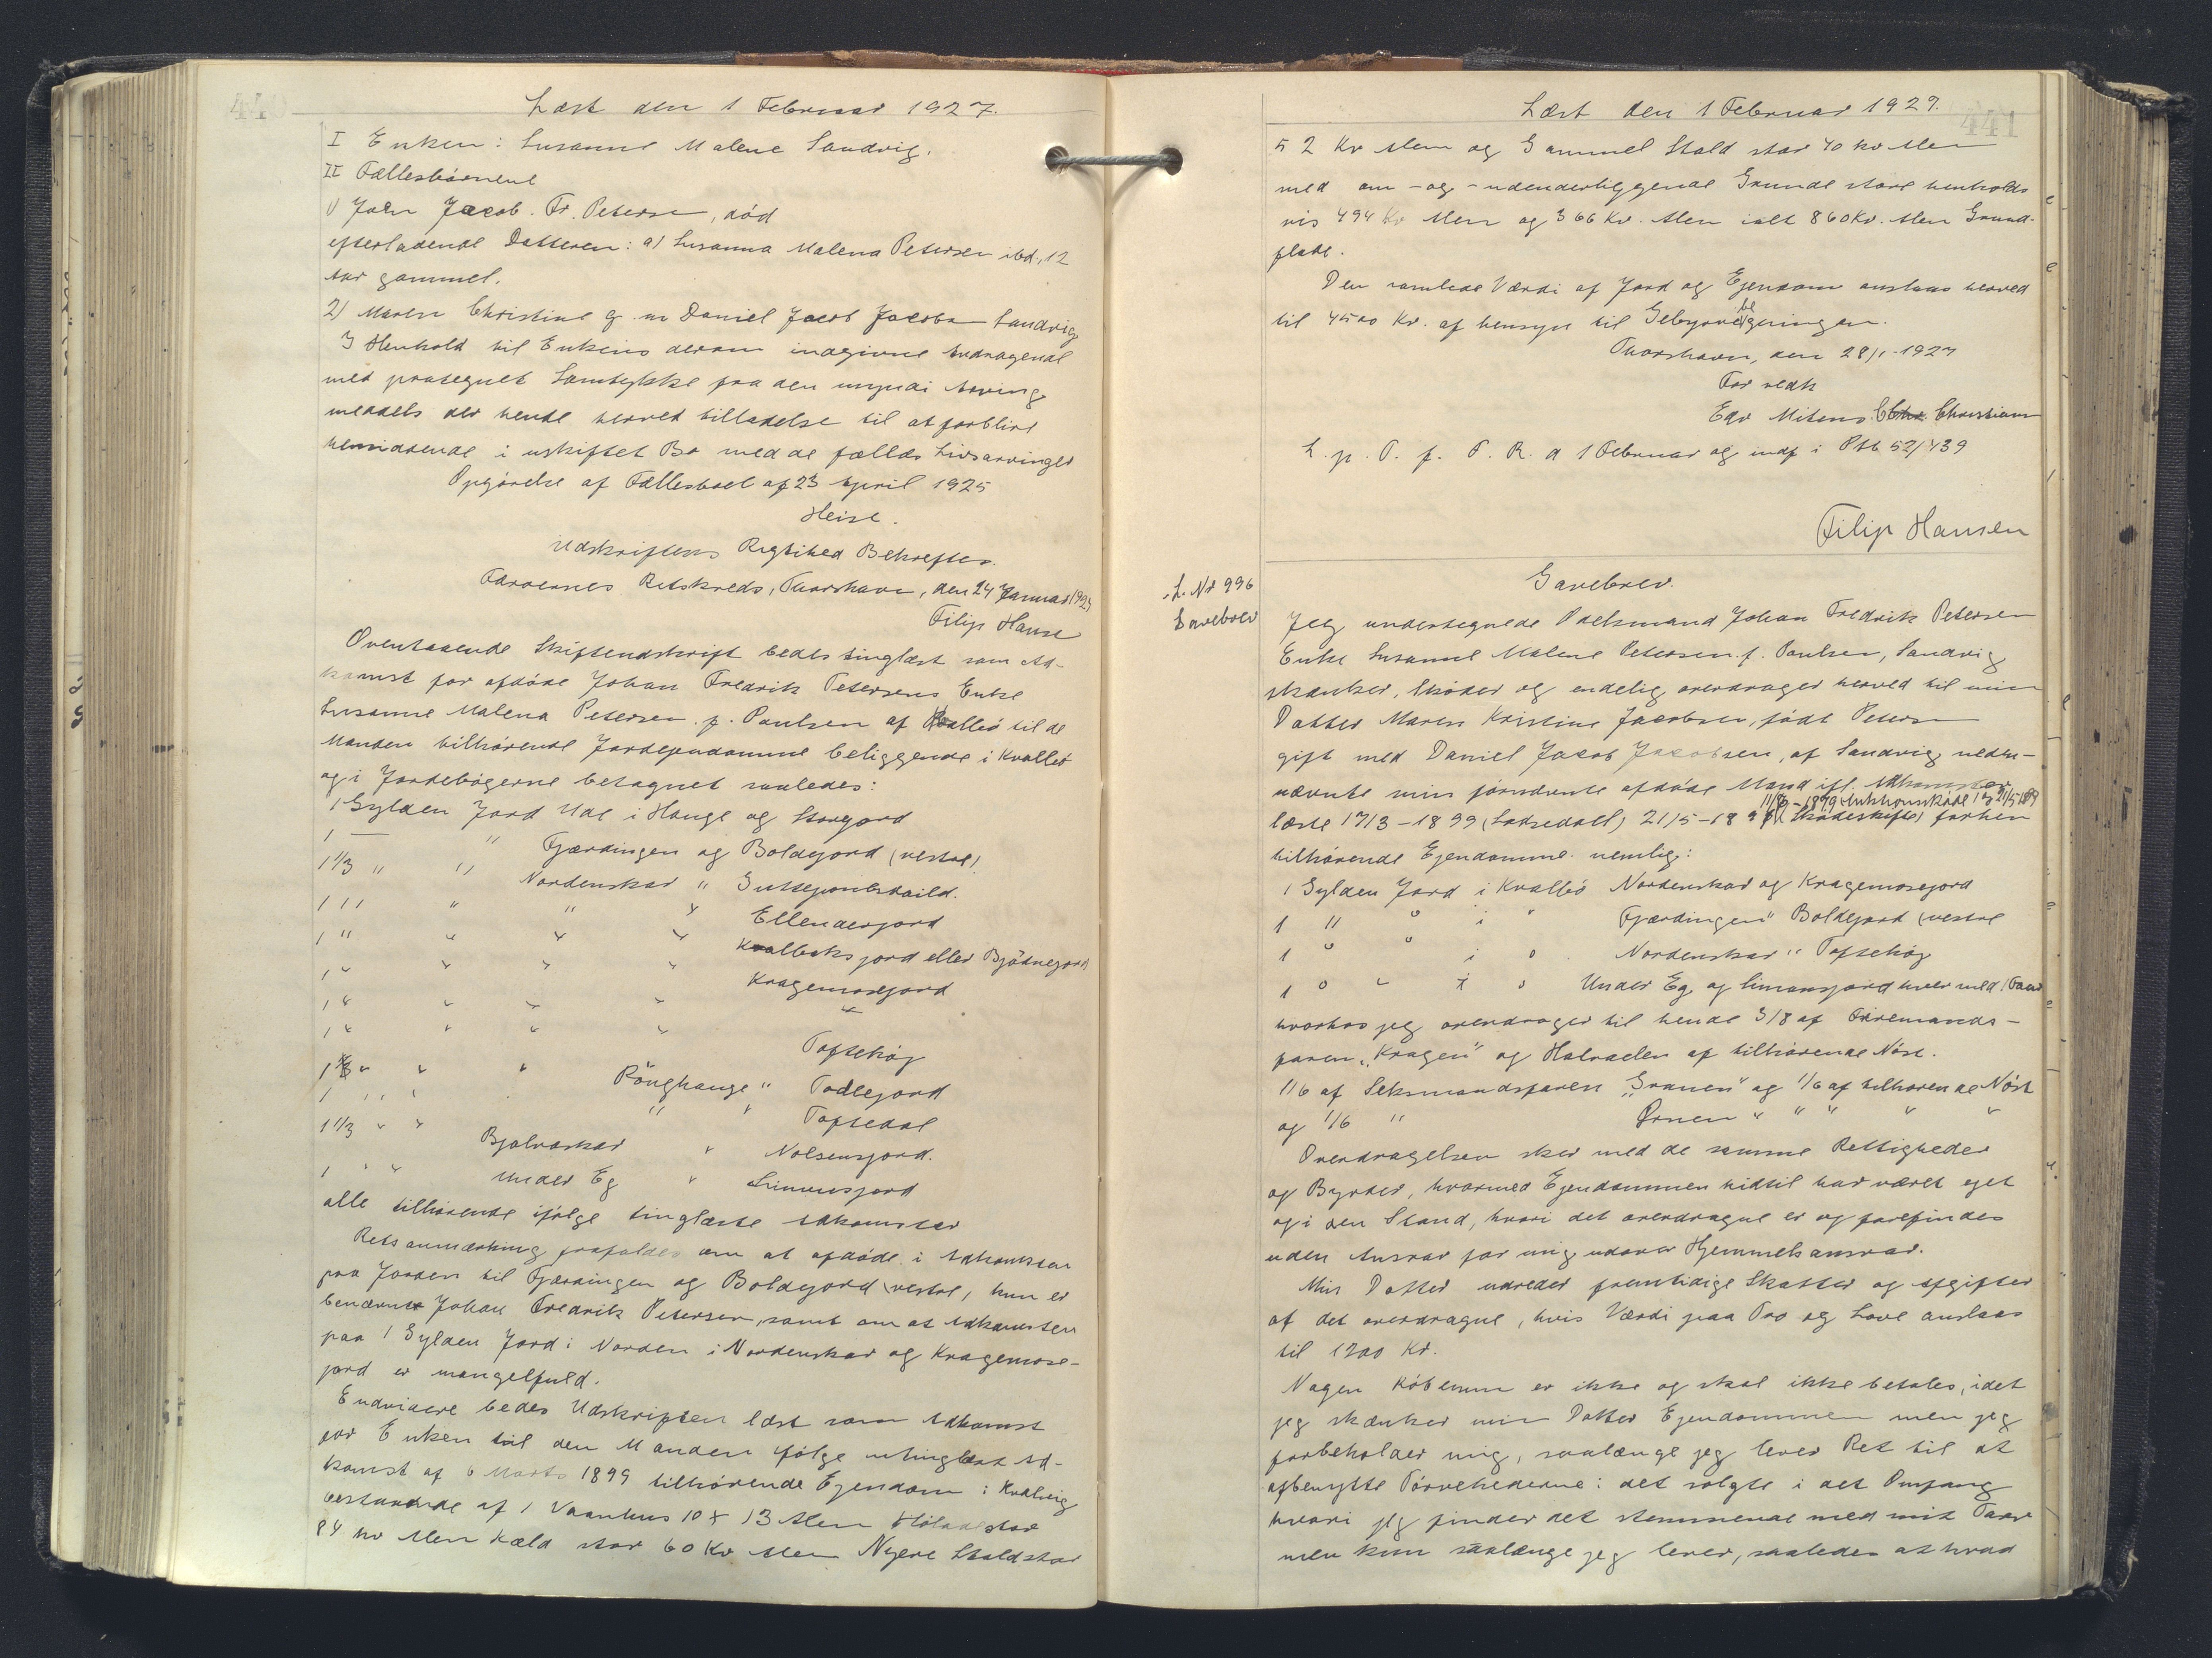 440
Læst den 1 Februar 1927.
I Enken: Susanne Malene Sandvig.
II Fællesbörnene
1) John Jacob. Fr. Petersen, död
efterladende Datteren: a) Susanna Malena Petersen ibd., 12
Aar gammel.
2) Maren Christine g. m. Daniel Jacob Jacobsen Sandvig
I Henhold til Enkens derom indgivne Andragende
med paategnet Samtykke fra den myndi Arving
meddels der hende herved tilladelse til at forblive
hensiddende i uskiftet Bo med de fælles Livsarvinger
Opgörelse af Fællesboet af 23 April 1925
Heise.
Udskriftens Rigtihed Bekræftes.
Færoernes Retskreds, Thorshavn, den 24 Januar 1927
Filip Hanse
Ovenstaaende Skifteudskrift bedes tinglæst som Ad-
komst for afdöde Johan Fredrik Petersens Enke
Susanne Malena Petersen f. Poulsen af Kvalbö til de
Manden tilhörende Jordejendomme beliggende i Kvalbö
og i Jordebögerne betegnet saaledes:
1 Gylden Jord Ude i Hauge og Storejord
1 — " Fjærdingen og Boldejord (vestre)
1 1/3 " " Nordenskar " Guttepoulstoild.
1 " " " " Ellendesjord
1 " " " " Kvalbeksjord eller Bjödnejord
1 " " " " Kragemosejord
1 " " " " "
1 " " " " Toftehög
1 1/3 " " " Rönghauge " Todlejord
1 " " " " Toftedal
1 1/3 " " Bjolvaskar " Nolsensjord.
1 " " Under Eg " Simunsjord
alle tilhörende ifölge tinglæste Adkomster
Retsanmærkning frafaldes om at afdöde i Adkomsten
paa Jorden til Fjærdingen og Boldejord (vestre) kun er
benævnt Johan Fredrik Petersen, samt om at Adkomsten
paa 1 Gylden Jord i Norden i Nordenskar og Kragemose-
jord er mangelfuld.
Endvidere bedes Udskriften læst som Adkomst
for Enken til den Manden ifölge utinglæst Ad-
komst af 6 Marts 1899 tilhörende Ejendom i Kvalvig
bestaaende af 1 Vaanhus 10 x 13 Alen Hölade stor
84 kv Alen Kæld stor 60 Kv Alen Nyere Stald stor
441
Læst den 1 Februar 1927.
52 Kv Alen og Gammel Stald stor 40 kv Alen
med om - og - udenderliggende Grunde store henholds
vis 494 Kv Alen og 366 Kv. Alen ialt 860 Kv. Alen Grund-
flade.
Den samlede Værdi af Jord og Ejendom anslaas herved
til 4500 Kr. af hensyn til Gebyrberegningen.
Thorshavn, den 28/1 - 1927
For vedk
Edv Mitens Christians
L. p. T. f. F. R. d 1 Februar og indf i Ptb 52/439
Filip Hansen
L. Nr 996
Gavebrev
Gavebrev.
Jeg undertegnede Odelsmand Johan Fredrik Petersen
Enke Susanne Malene Petersen f. Poulsen, Sandvig
skænker, skøder og endelig overdrager herved til min
Datter Maren Kristine Jacobsen, födt Peterse
gift med Daniel Jacob Jacobsen, af Sandvig neden-
nævnte min fornævnte afdöde Mand ifl. Adkomster
11/8 - 1899 (Auktionsskøde) og 21/5 1889
læste 17/3 - 1899 (Ladsedall) 21/5 - 189 (Skødeskifte) forhen
tilhörende Ejendomme nemlig:
1 Gylden Jord i Kvalbö Nordenskar og Kragemosejord
1 " " i " Fjærdingen " Boldejord (vestre
1 " " i " Nordenskar " Toftehög
1 " " i " Under Eg og Simonsjord hver med 1 Faar
hvorhos jeg overdrager til hende 3/8 af Firemands-
faren „Kragen" og Halvdelen af tilhörende Nöst.
1/6 af Seksmandsfaren „Granen" og 1/6 af tilhörende Nöst
og 1/6 " Ørnen " " " " "
Overdragelsen sker med de samme Rettigheder
og Byrder, hvormed Ejendommen hidtil har været ejet
og i den Stand, hvori det overdragne er og forefindes
uden Ansvar for mig udover Hjemmelsansvar.
Min Datter udreder fremtidige Skatter og Afgifter
af det overdragne, hvis Værdi paa Tro og Love anslaas
til 1200 Kr.
Nogen Köbesum er ikke og skal ikke betales, idet
jeg skænker min Datter Ejendommen men jeg
forbeholder mig, saalænge jeg lever Ret til at
afbenytte Törvehederne i det solgte i det Omfang
hvori jeg finder det stemmende med mit Tarv
men kun saalænge jeg lever, saaledes at hvad